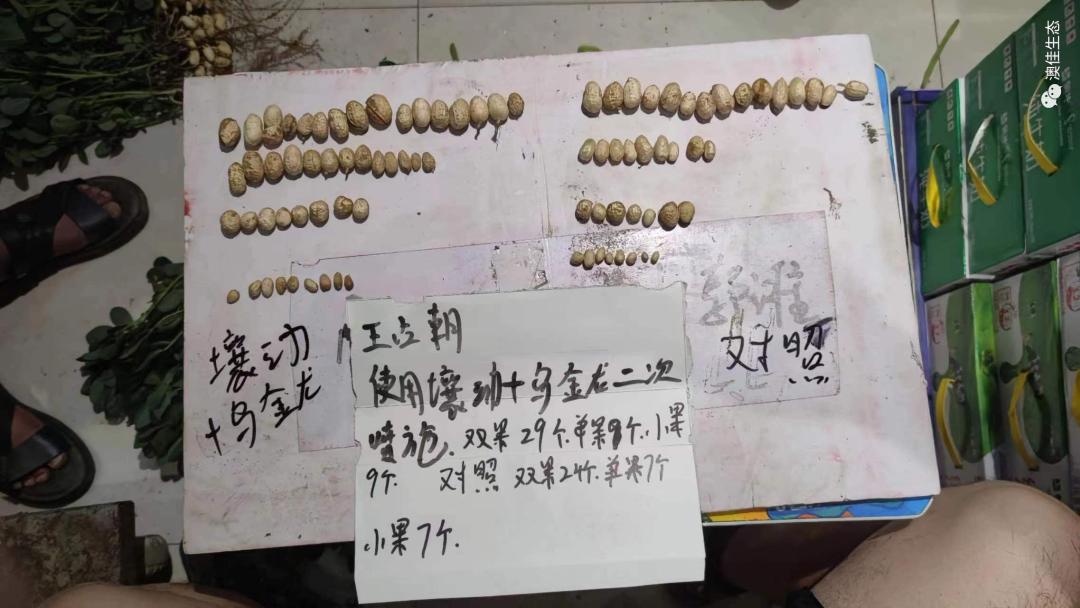 澳佳生态
壤动
+乌金龙
对照
王占朝
使用壤动+乌金龙二次
喷施.双果29个.单果9个.小果
9个. 对照 双果24个.单果7个
小果7个.